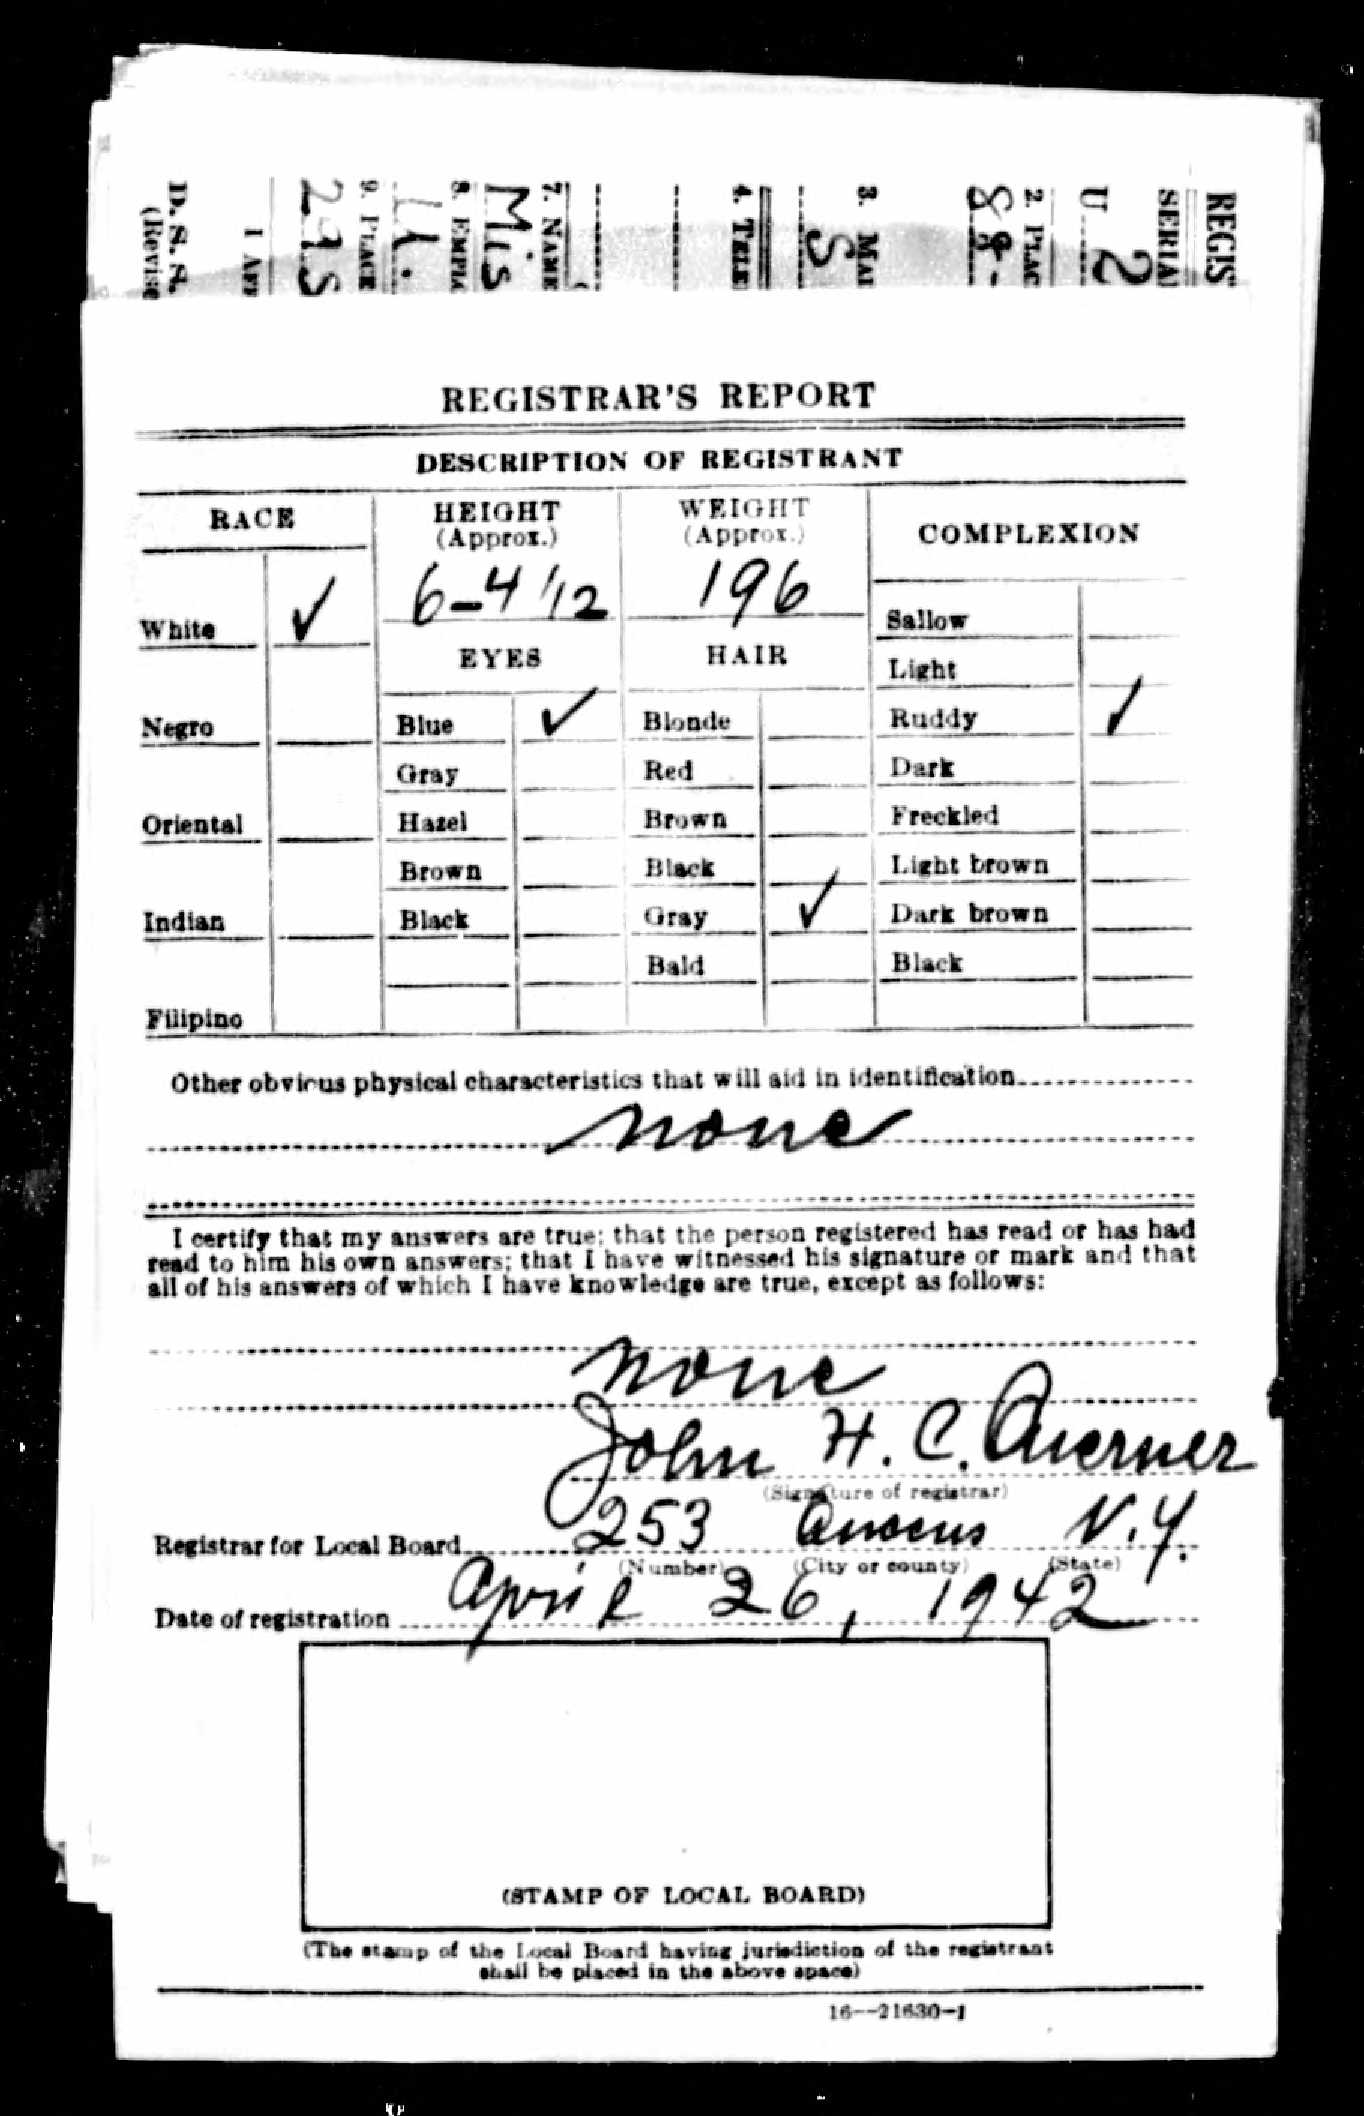 REGIS
SERIAL
U 2
2. PLAC
88-
3. MAI
S
4. TELE
7. NAME
Mis
8. EMPL
9. PLACE
I AFF
D. S. S.
(Revise
REGISTRAR'S REPORT
DESCRIPTION OF REGISTRANT
RACE HEIGHT (Approx.) WEIGHT (Approx.) COMPLEXION
White ✓ 6-4 1/12 196 Sallow
EYES HAIR Light
Negro Blue ✓ Blonde Ruddy ✓
Gray Red Dark
Oriental Hazel Brown Freckled
Brown Black Light brown
Indian Black Gray ✓ Dark brown
Bald Black
Filipino
Other obvious physical characteristics that will aid in identification
none
I certify that my answers are true; that the person registered has read or has had
read to him his own answers; that I have witnessed his signature or mark and that
all of his answers of which I have knowledge are true, except as follows:
none
John H. C. Averner
(Signature of registrar)
Registrar for Local Board 253 Queens N.Y.
(Number) (City or county) (State)
Date of registration April 26, 1942
(STAMP OF LOCAL BOARD)
(The stamp of the Local Board having jurisdiction of the registrant
shall be placed in the above space)
16—21630-1